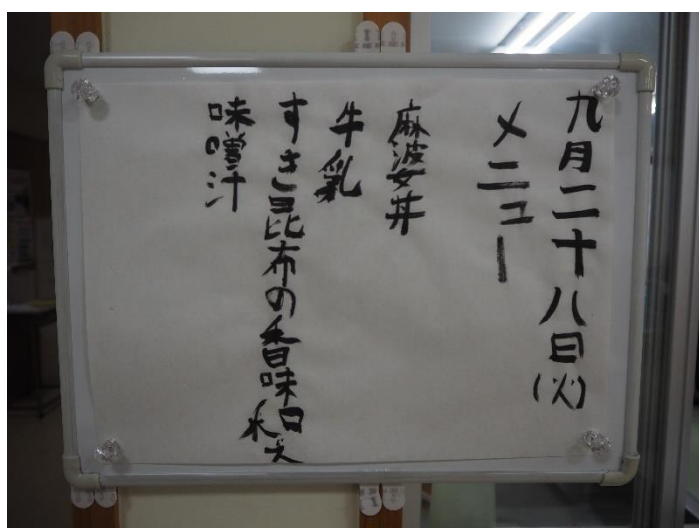 九月二十八日(火)
メニュー
麻婆丼
牛乳
すき昆布の香味和え
味噌汁